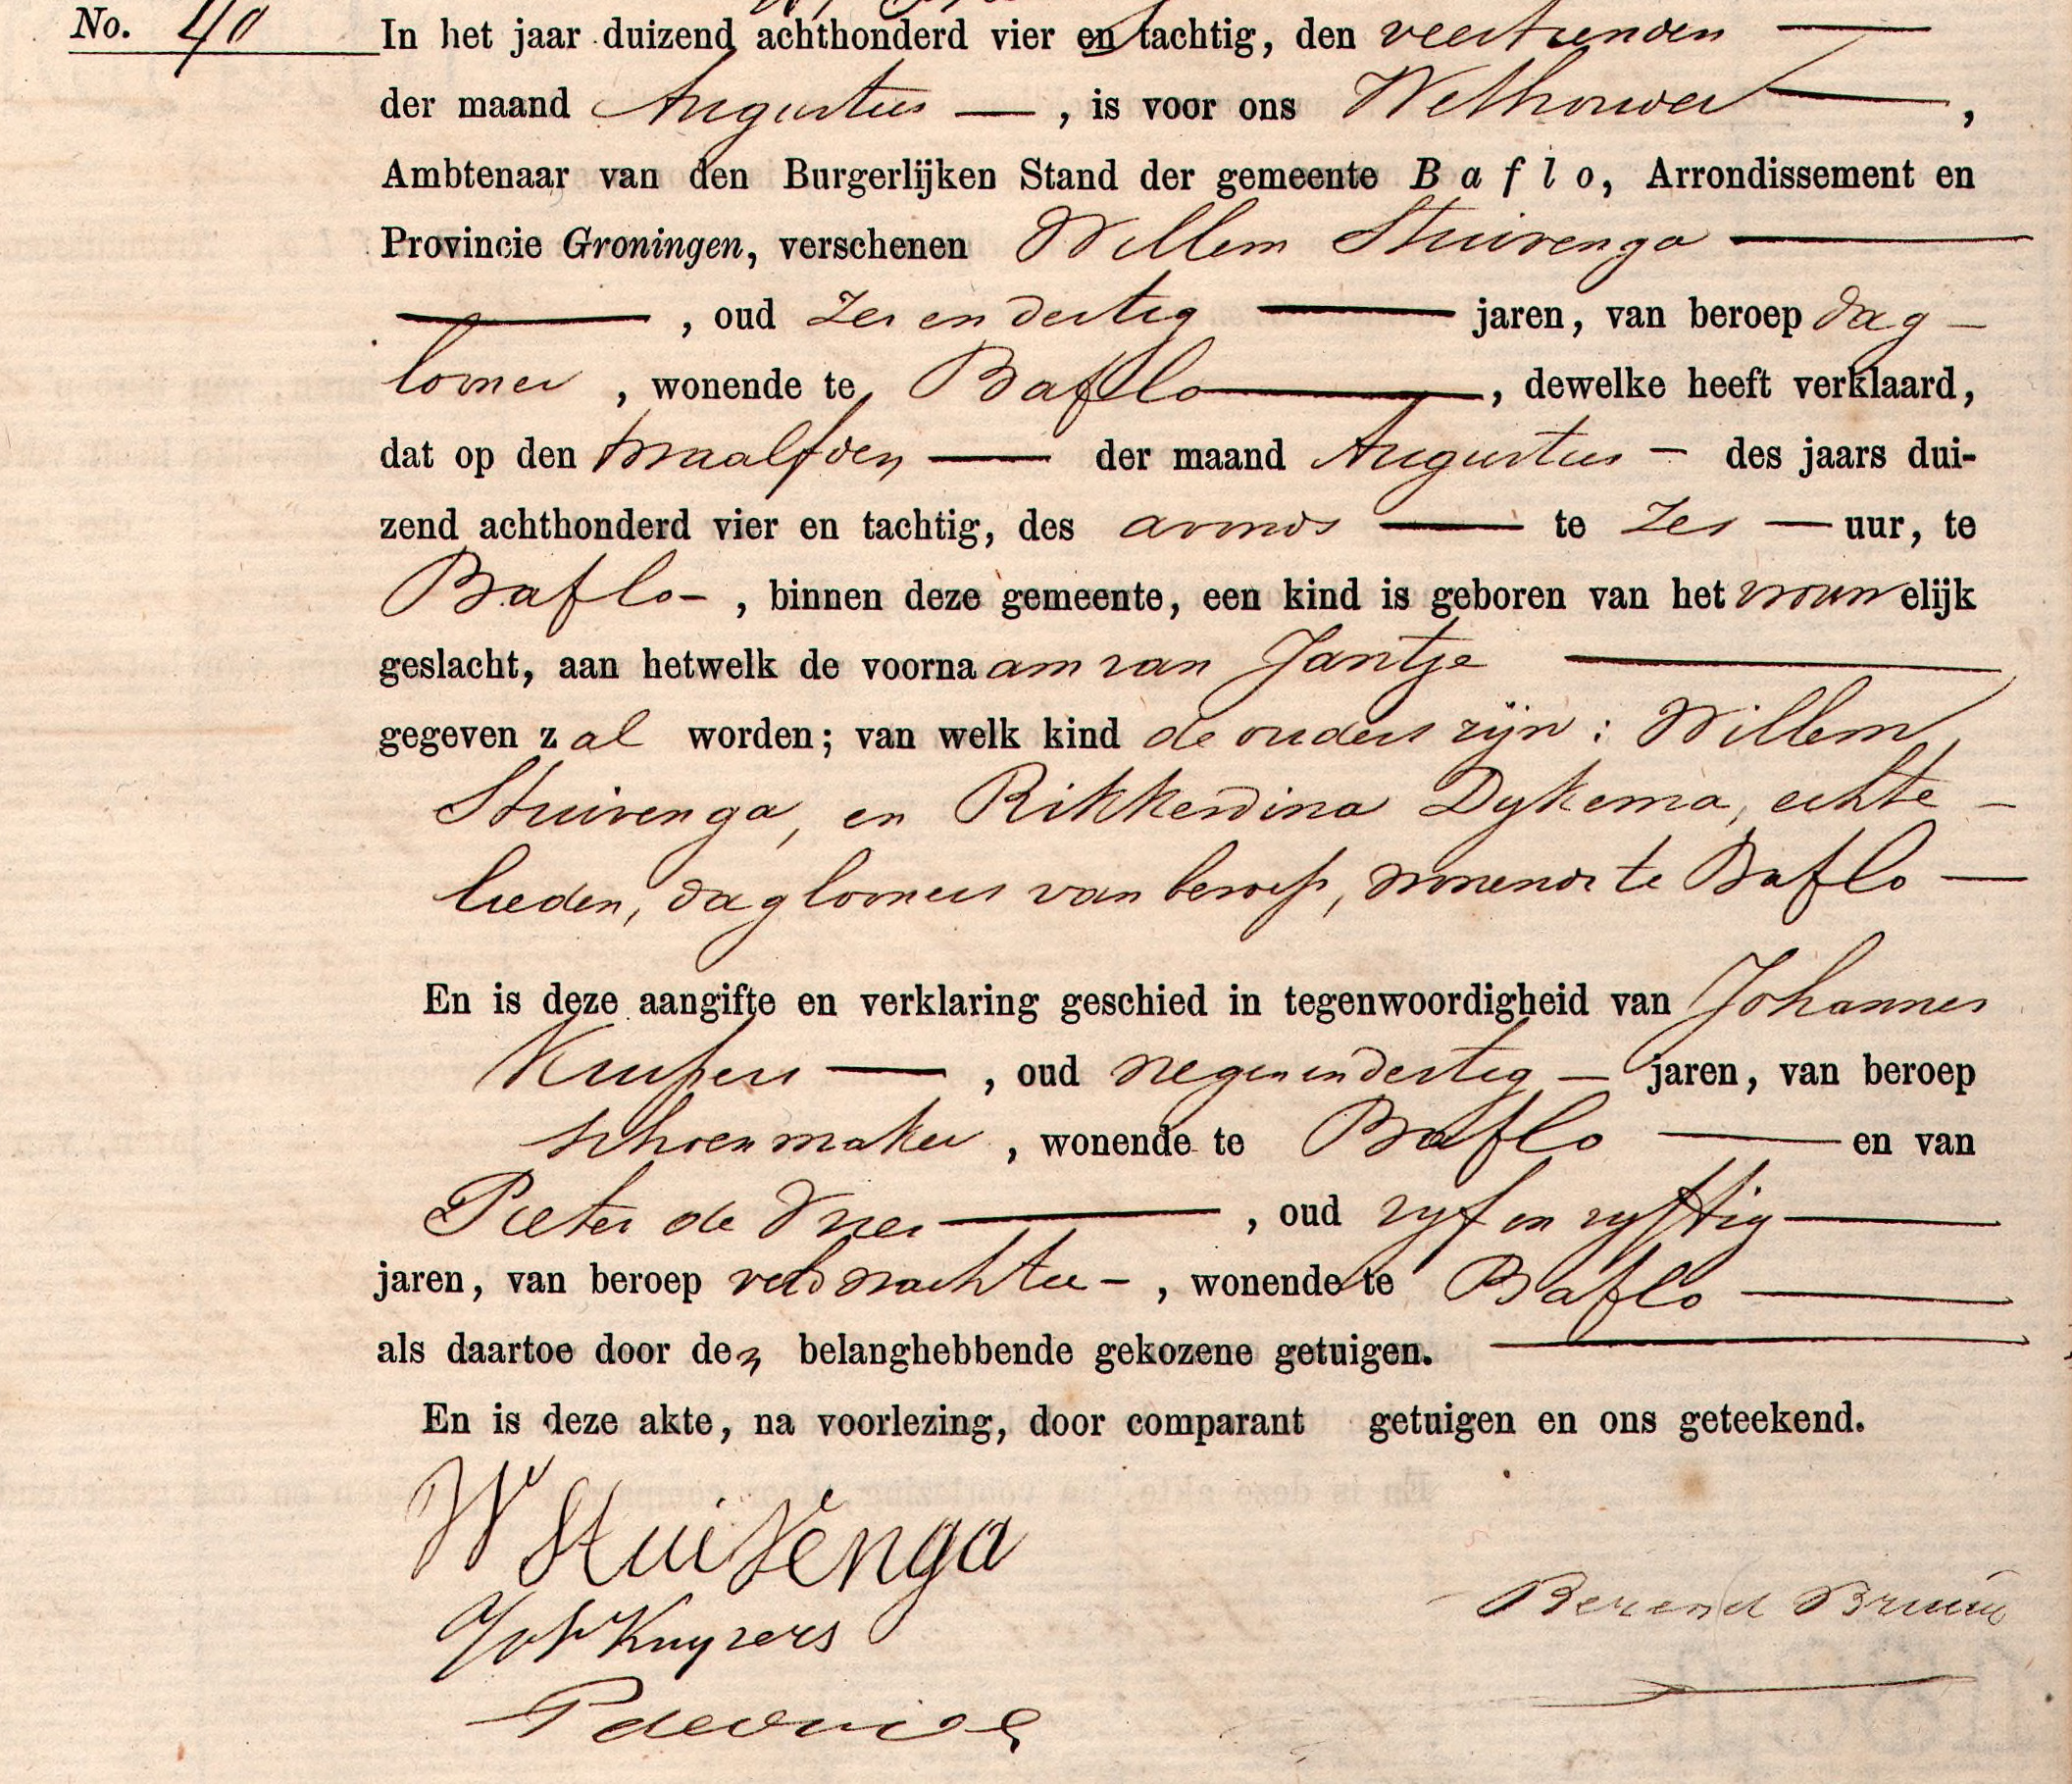 No. 40 In het jaar duizend achthonderd vier en tachtig, den veertienden
der maand Augustus —, is voor ons Wethouder —,
Ambtenaar van den Burgerlijken Stand der gemeente Baflo, Arrondissement en
Provincie Groningen, verschenen Willem Stuivenga —
—, oud zes en dertig — jaren, van beroep dag-
looner, wonende te Baflo —, dewelke heeft verklaard,
dat op den twaalfden — der maand Augustus — des jaars dui-
zend achthonderd vier en tachtig, des avonds — te zes — uur, te
Baflo —, binnen deze gemeente, een kind is geboren van het vrouwelijk
geslacht, aan hetwelk de voornaam van Jantje —
gegeven zal worden; van welk kind de ouders zijn: Willem
Stuivenga, en Rikkerdina Dykema, echte-
lieden, daglooners van beroep, wonende te Baflo —
En is deze aangifte en verklaring geschied in tegenwoordigheid van Johannes
Kuipers —, oud negenendertig — jaren, van beroep
schoenmaker, wonende te Baflo — en van
Pieter de Vries —, oud vyf en vyftig —
jaren, van beroep veldwachter —, wonende te Baflo —
als daartoe door den belanghebbende gekozene getuigen. —
En is deze akte, na voorlezing, door comparant getuigen en ons geteekend.
W Stuivenga
Joh Kuypers
Berend
P de Vries